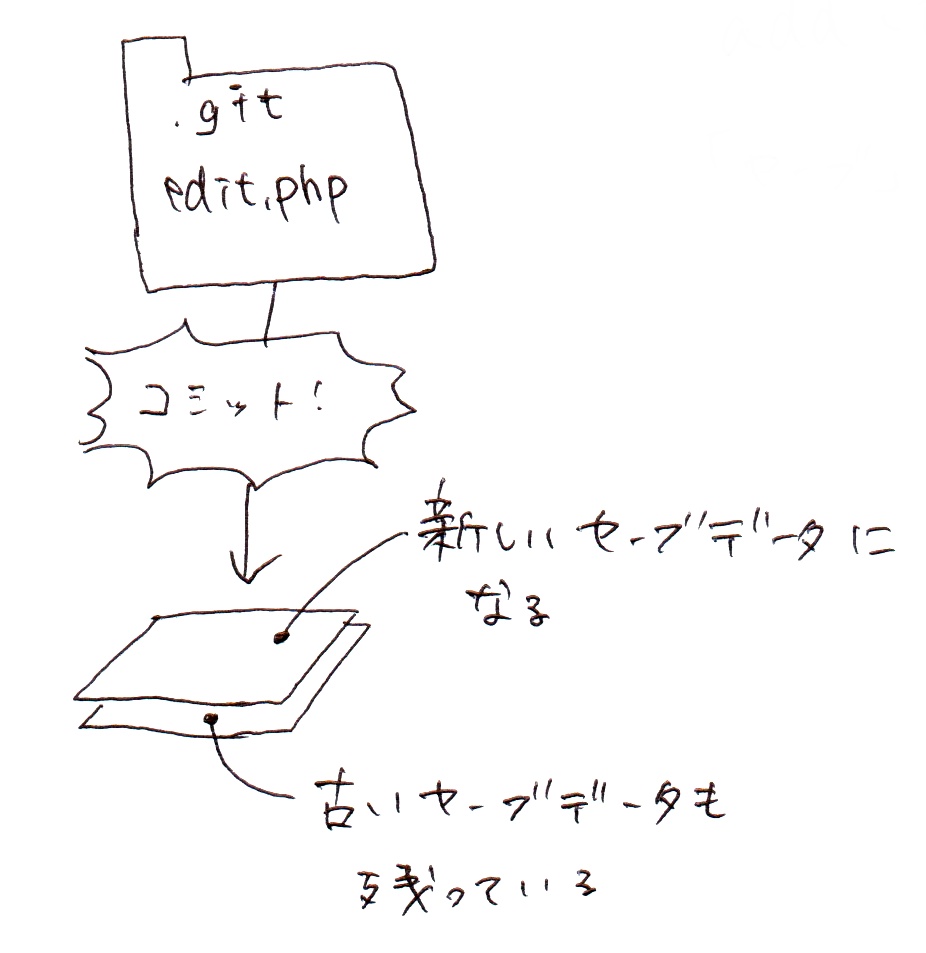 .git
edit.php
コミット!
新しいセーブデータに
なる
古いセーブデータも
残っている